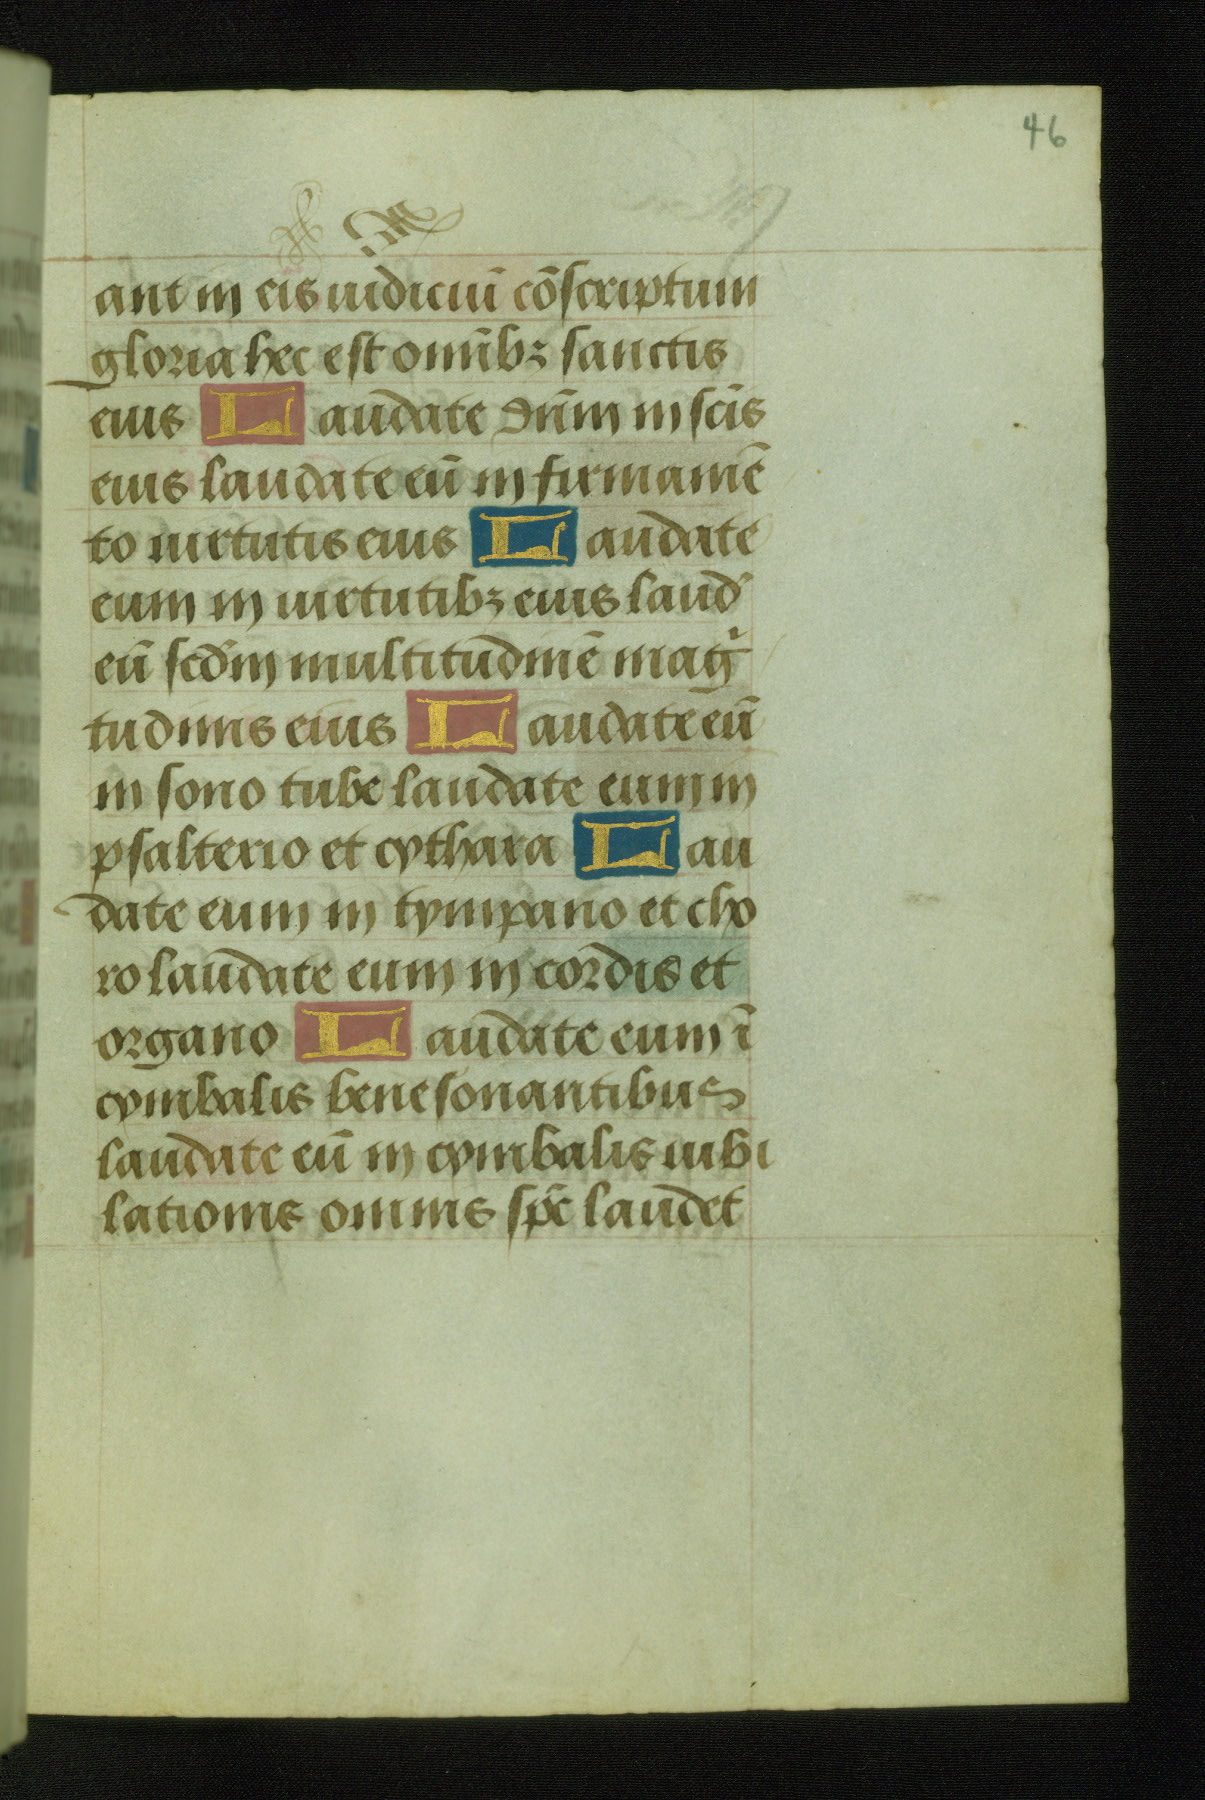 46
ant in eis iudiciū cōscriptum
gloria hec est omībꝫ sanctis
eius Laudate dn̄m in sc̄is
eius laudate eū in firmamē
to uirtutis eius Laudate
eum in uirtutibꝫ eius laud̄
eū scd̄m multitudinē magͥ
tudinis eius Laudate eū
in sono tube laudate eum in
psalterio et cythara Lau
date eum in tympano et cho
ro laudate eum in cordis et
organo Laudate eum ī
cymbalis benesonantibus
laudate eū in cymbalis iubi
lationis omnis sp̄c laudet